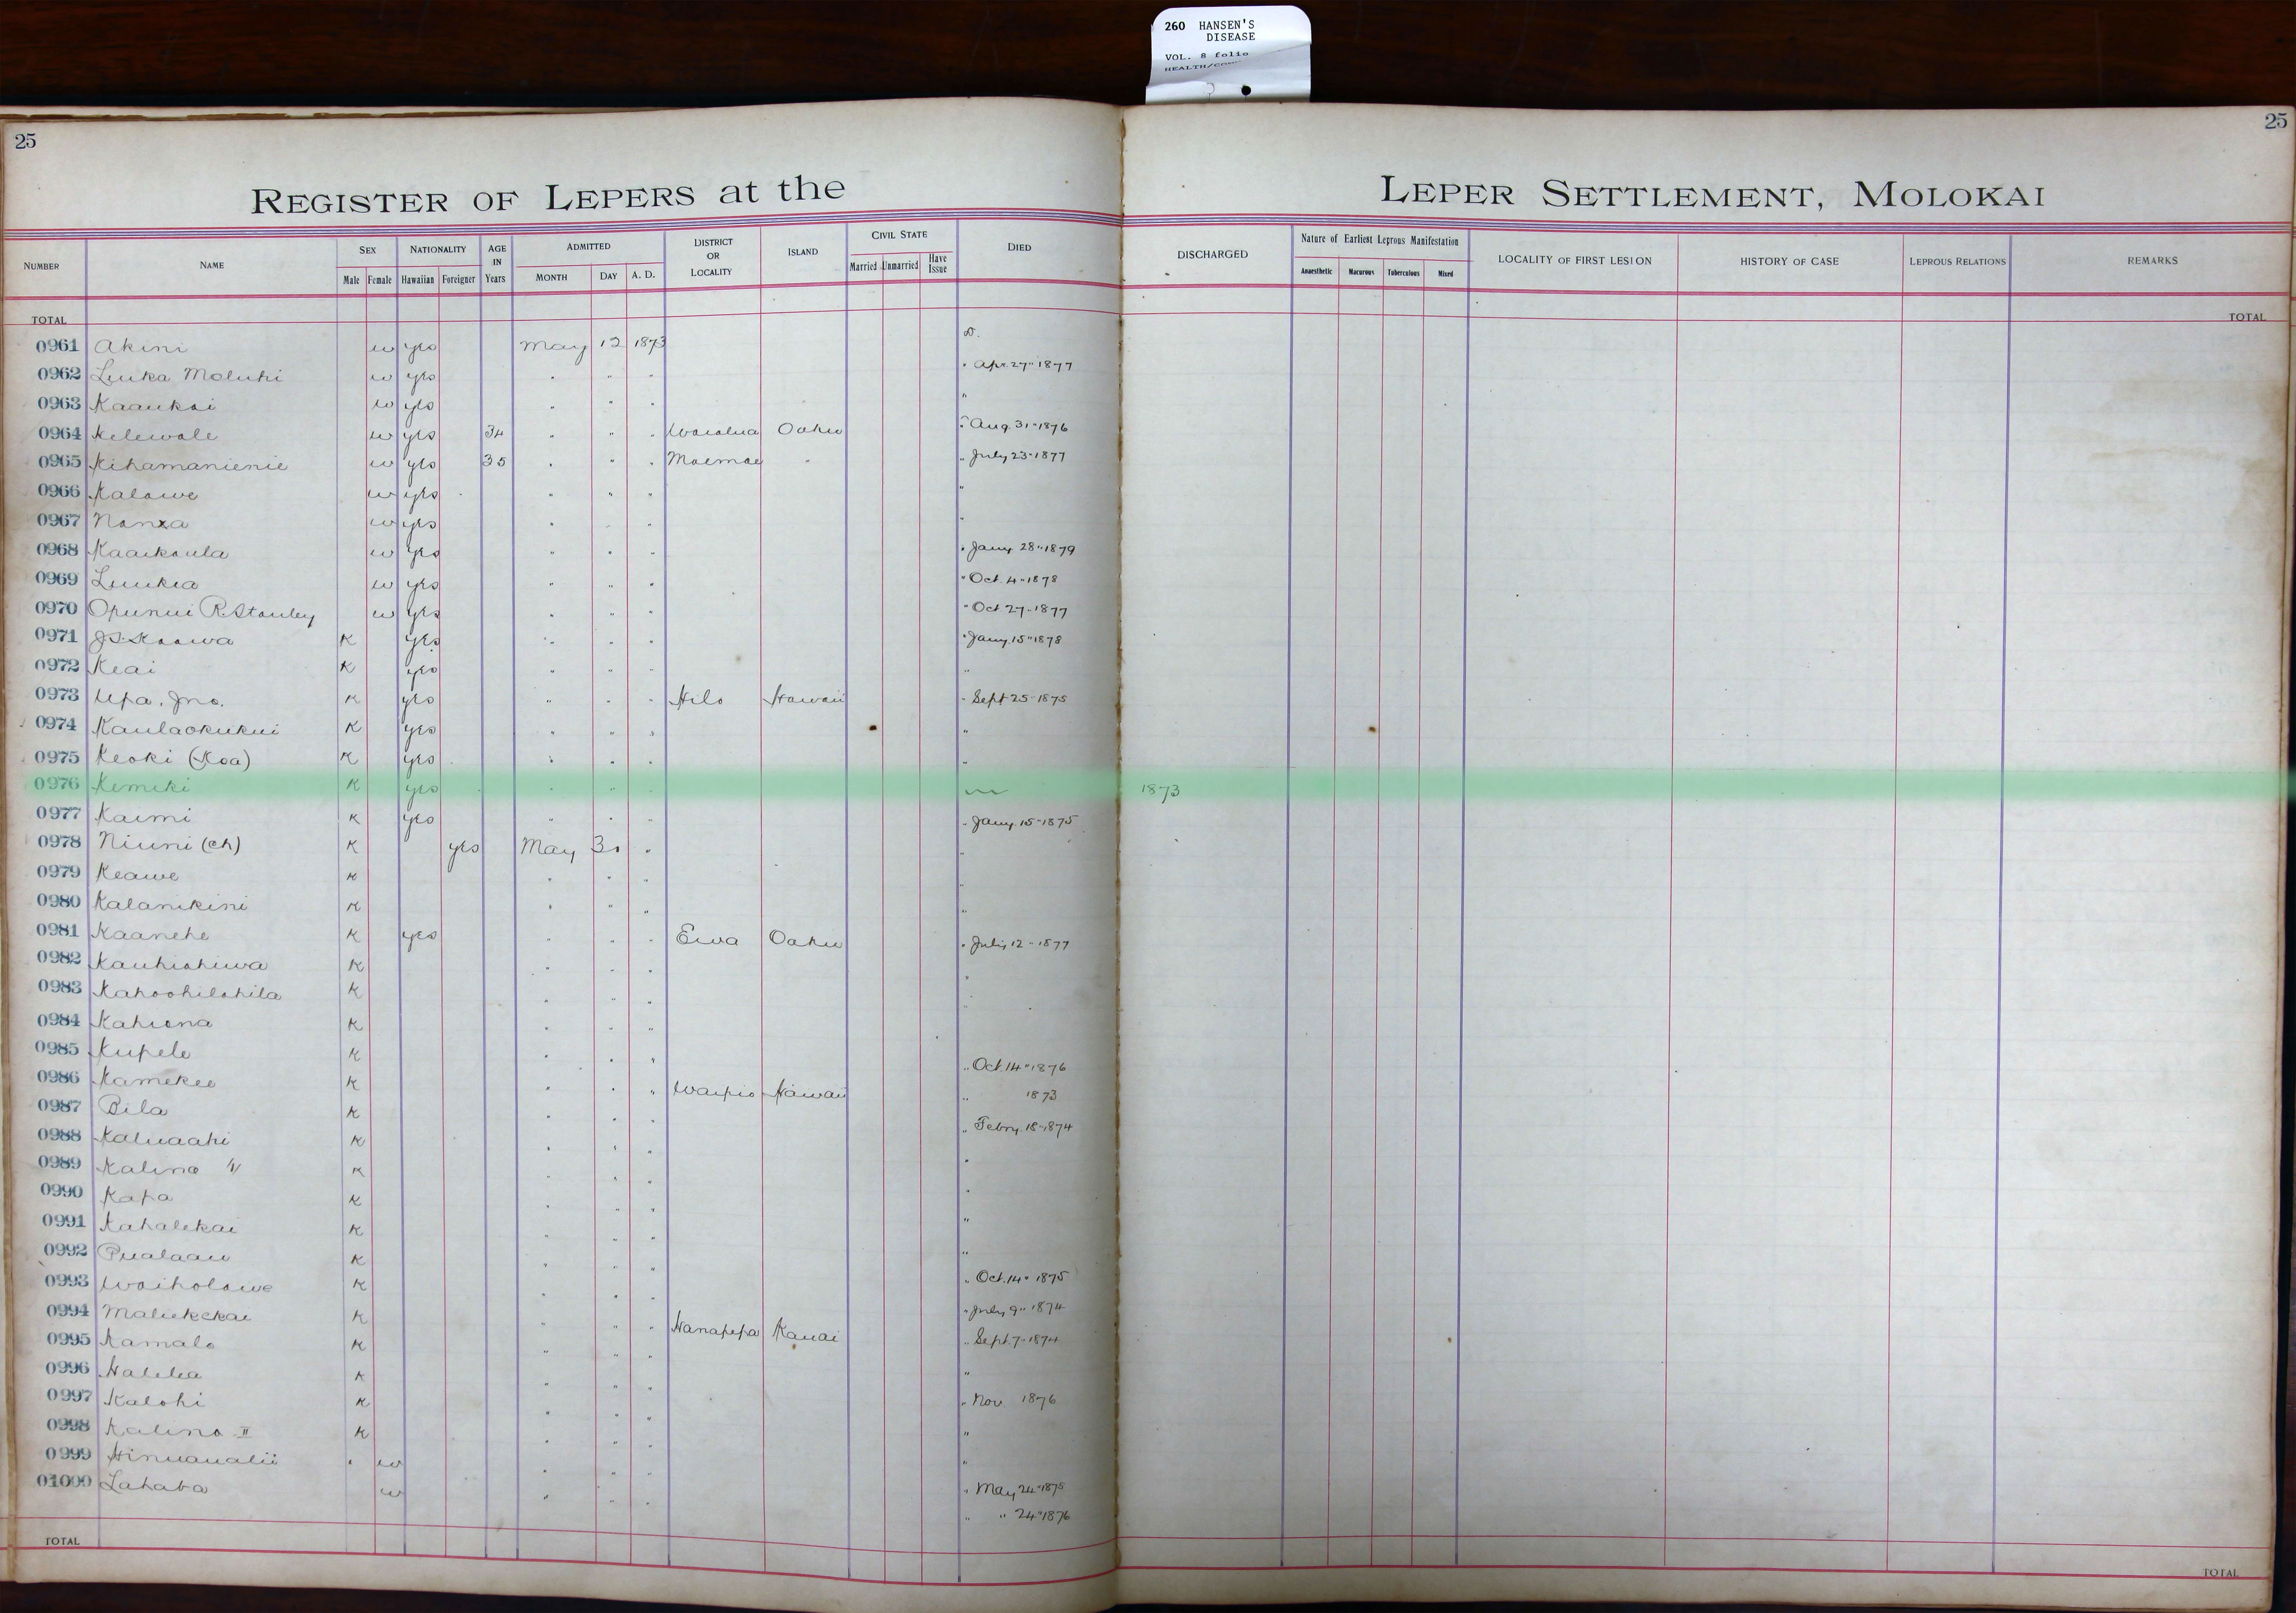 260 HANSEN'S
DISEASE
VOL. 8 folio
25
25
REGISTER OF LEPERS at the
LEPER SETTLEMENT, MOLOKAI
NUMBER NAME SEX Male Female NATIONALITY Hawaiian Foreigner AGE IN Years ADMITTED MONTH DAY A. D. DISTRICT OR LOCALITY ISLAND CIVIL STATE Married Unmarried Have Issue DIED DISCHARGED Nature of Earliest Leprous Manifestation Anaesthetic Macurous Tuberculous Mixed LOCALITY OF FIRST LESION HISTORY OF CASE LEPROUS RELATIONS REMARKS
TOTAL TOTAL
0961 Akini w yes May 12 1873 D.
0962 Luika Moluhi w yes " " " " Apr. 27" 1877
0963 Kaaukai w yes " " " "
0964 Kelewale w yes 34 " " " Waialua Oahu " Aug. 31" 1876
0965 Kihamanienie w yes 35 " " " Moemoe " " July 23" 1877
0966 Kalawe w yes " " " "
0967 w yes " " " "
0968 Kaaikaula w yes " " " " Jany. 28" 1879
0969 Luukia w yes " " " " Oct. 4" 1878
0970 Opunui R. Stanley w yes " " " " Oct 27" 1877
0971 J.S. Kaawa K yes " " " " Jany. 15" 1878
0972 Keai K yes " " " "
0973 Upa, Jno. K yes " " " Hilo Hawaii " Sept 25" 1875
0974 Kaulaokukui K yes " " " "
0975 Keoki (Koa) K yes " " " "
0976 Kemiki K yes " " 1873
0977 Kaimi K yes " " " " Jany. 15" 1875
0978 Niuni (ch) K yes May 30 " "
0979 Keawe K " " " "
0980 Kalanikini K " " " "
0981 Kaanehe K yes " " " Ewa Oahu " July 12" 1877
0982 Kauhiohiwa K " " " "
0983 Kahoohilahila K " " " "
0984 Kahiona K " " "
0985 Kupele K " " " " Oct. 14" 1876
0986 Kamekeo K " " " Waipio Hawaii " 1873
0987 Bila K " " " " Febry. 18" 1874
0988 Kaluaahi K " " " "
0989 Kalino K " " " "
0990 Kapa K " " " "
0991 Kahalekai K " " " "
0992 Pualaau K " " " " Oct. 14" 1875
0993 Waiholowe K " " " " July 9" 1874
0994 Maliekekai K " " " Hanapepa Kauai " Sept. 7" 1874
0995 Kamalo K " " " "
0996 Halelea K " " " " Nov. 1876
0997 Kalohi K " " " "
0998 Kalino II K " " " "
0999 Hinuaualii w " " " " May 24" 1875
01000 Lahaba w " " " " " 24" 1876
TOTAL TOTAL